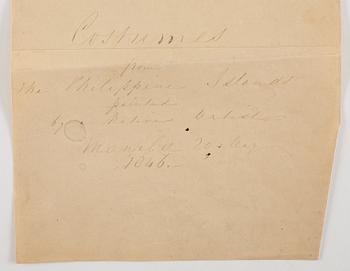 Costumes
from
The Philippine Islands
painted
by a Native Artist
Manila
1846.